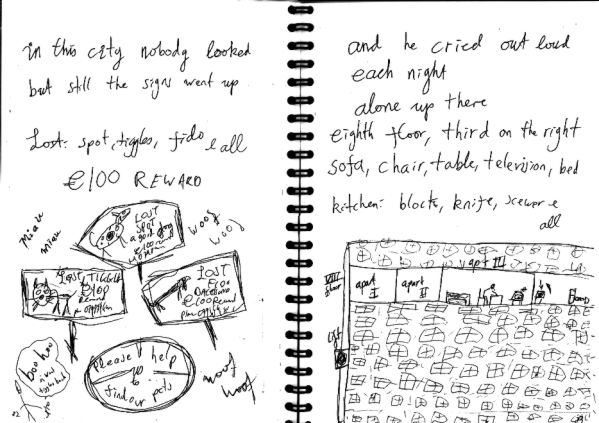 in this city nobody looked
but still the signs went up
Lost: spot, tiggles, fido e all
€100 REWARD
miau
miau
LOST
SPOT
a good dog
€100
woof
woof
LOST
€100
LOST
€100
boo hoo
please help
us
find our pets
woof
woof
and he cried out loud
each night
alone up there
eighth floor, third on the right
sofa, chair, table, television, bed
kitchen: blocks, knife, scewer e
all
apart III
VIII
floor
apart
I
apart
II
LIFT